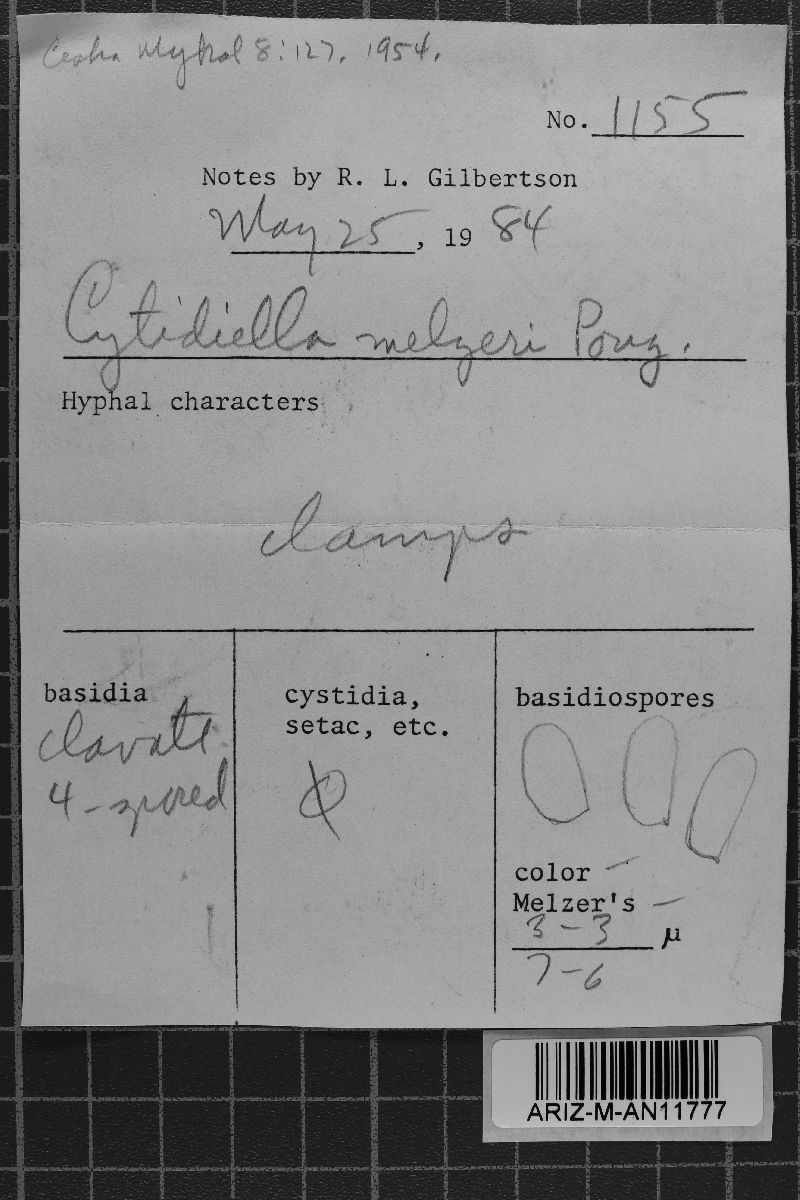 Ceska Mykol 8:127. 1954.
No. 1155
Notes by R. L. Gilbertson
May 25, 1984
Cytidiella melzeri Pouz.
Hyphal characters
clamps
basidia
clavate
4-spored
cystidia,
setac, etc.
basidiospores
color -
Melzer's -
3-3 µ
7-6
ARIZ-M-AN11777